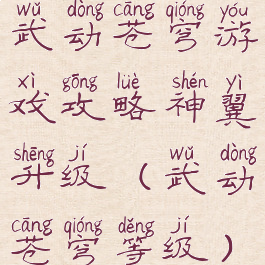 wǔ dòng cāng qióng yóu
武动苍穹游
xì gōng lüè shén yì
戏攻略神翼
shēng jí wǔ dòng
升级（武动
cāng qióng děng jí
苍穹等级）